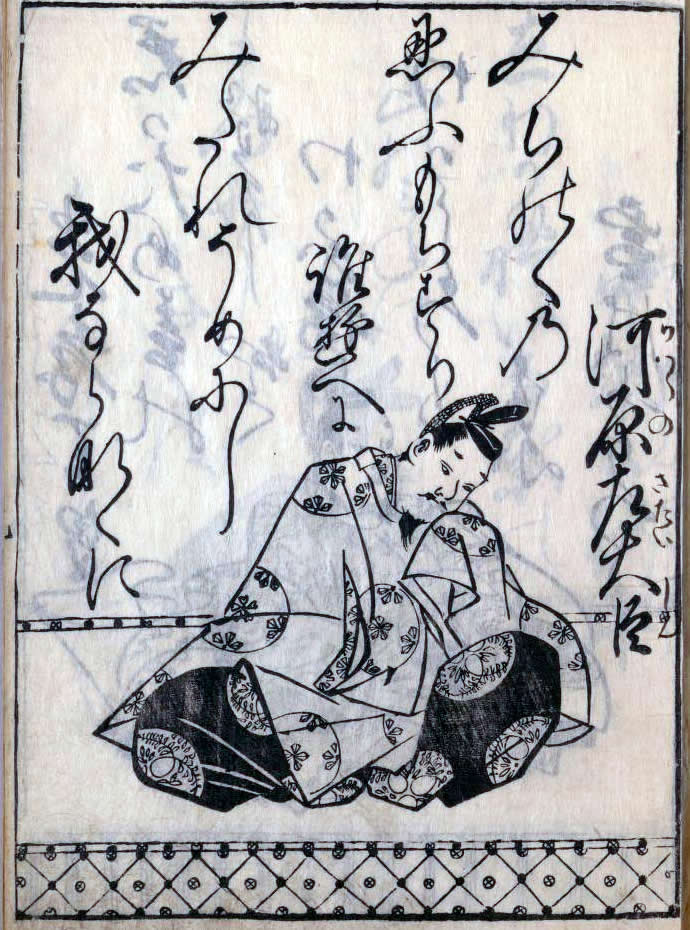 河原左大臣
かはらの さたいしん
みちのく乃
忍ふもちすり
誰ゆへに
みたれそめにし
我ならなくに